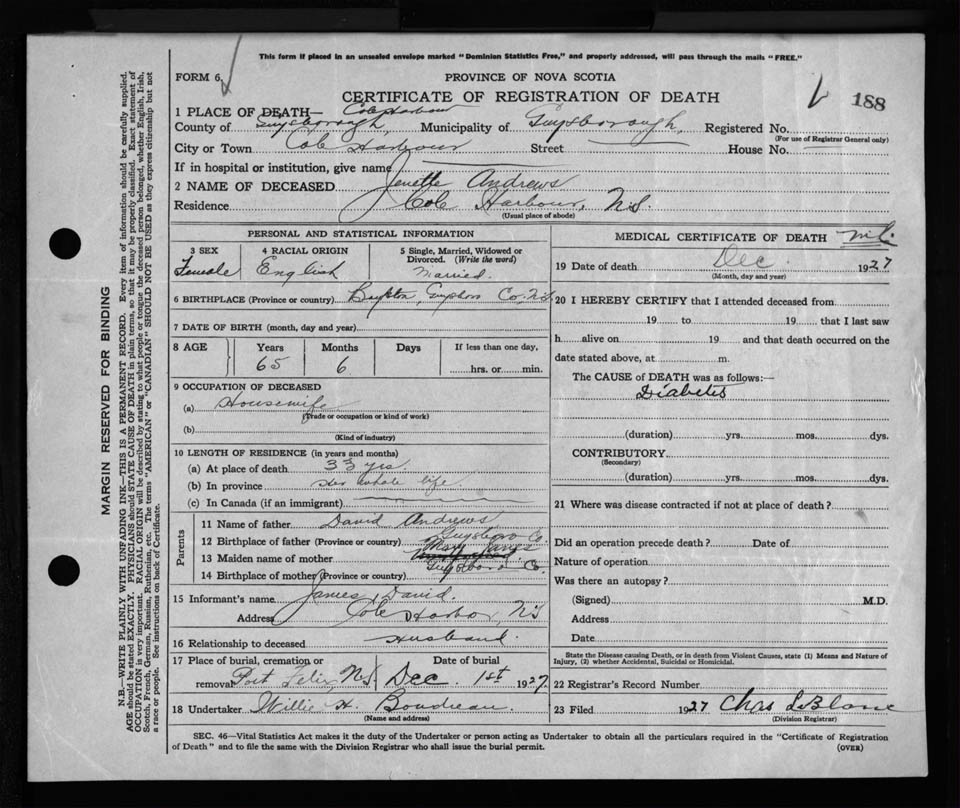 This form if placed in an unsealed envelope marked "Dominion Statistics Free," and properly addressed, will pass through the mails "FREE."
FORM 6
PROVINCE OF NOVA SCOTIA
CERTIFICATE OF REGISTRATION OF DEATH
188
1 PLACE OF DEATH— Cole Harbour
County of Guysborough, Municipality of Guysborough, Registered No.
(For use of Registrar General only)
City or Town Cole Harbour Street House No.
If in hospital or institution, give name
2 NAME OF DECEASED Jenette Andrews
Residence Cole Harbour, N.S.
(Usual place of abode)
PERSONAL AND STATISTICAL INFORMATION
3 SEX 4 RACIAL ORIGIN 5 Single, Married, Widowed or Divorced. (Write the word)
Female English Married.
6 BIRTHPLACE (Province or country) Co, N.S.
7 DATE OF BIRTH (month, day and year)
8 AGE Years Months Days If less than one day,
65 6 hrs. or min.
9 OCCUPATION OF DECEASED
(a) Housewife
(Trade or occupation or kind of work)
(b)
(Kind of industry)
10 LENGTH OF RESIDENCE (in years and months)
(a) At place of death 33 yrs.
(b) In province her whole life
(c) In Canada (if an immigrant)
Parents
11 Name of father David Andrews
12 Birthplace of father (Province or country) Guysboro Co.
13 Maiden name of mother Mary
14 Birthplace of mother (Province or country) Guysboro Co.
15 Informant's name James David
Address Cole Harbor, N.S
16 Relationship to deceased Husband.
17 Place of burial, cremation or removal Port Felix, N.S Date of burial Dec. 1st 1927.
18 Undertaker Willie H. Boudreau
(Name and address)
MEDICAL CERTIFICATE OF DEATH
19 Date of death Dec. 1927
(Month, day and year)
20 I HEREBY CERTIFY that I attended deceased from
19 to 19 that I last saw
h alive on 19 and that death occurred on the
date stated above, at m.
The CAUSE of DEATH was as follows:—
Diabetis
(duration) yrs. mos. dys.
CONTRIBUTORY
(Secondary)
(duration) yrs. mos. dys.
21 Where was disease contracted if not at place of death?
Did an operation precede death? Date of
Nature of operation
Was there an autopsy?
(Signed) M.D.
Address
Date
State the Disease causing Death, or in death from Violent Causes, state (1) Means and Nature of
Injury, (2) whether Accidental, Suicidal or Homicidal.
22 Registrar's Record Number
23 Filed 1927 Chas LeBlanc
(Division Registrar)
SEC. 46—Vital Statistics Act makes it the duty of the Undertaker or person acting as Undertaker to obtain all the particulars required in the "Certificate of Registration
of Death" and to file the same with the Division Registrar who shall issue the burial permit.
(OVER)
MARGIN RESERVED FOR BINDING
N.B.—WRITE PLAINLY WITH UNFADING INK—THIS IS A PERMANENT RECORD. Every item of information should be carefully supplied.
AGE should be stated EXACTLY. PHYSICIANS should STATE CAUSE OF DEATH in plain terms, so that it may be properly classified. Exact statement of
OCCUPATION is very important. RACIAL ORIGIN will be described by stating to what people or tongue the deceased person belonged, whether English, Irish,
Scotch, French, German, Russian, Ruthenian, etc. The terms "AMERICAN" or "CANADIAN" SHOULD NOT BE USED as they express citizenship but not
a race or people. See instructions on back of Certificate.